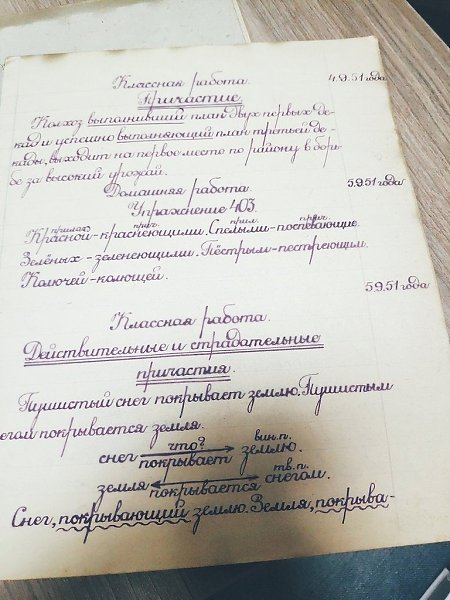 Классная работа. 4.9.51 года
Причастие.
Колхоз выполнивший план двух первых де-
кад и успешно выполняющий план третьей де-
кады, выходит на первое место по району в борь-
бе за высокий урожай.
Домашняя работа. 5.9.51 года
Упражнение 403.
прилаг. прич. прил. прич.
Красной-краснеющими. Спелыми-поспевающие
Зелёных-зеленеющими. Пёстрым-пестреющим.
Колючей-колющей.
5.9.51 года
Классная работа.
Действительные и страдательные
причастия.
Пушистый снег покрывает землю. Пушистым
снегом покрывается земля.
что? вин.п.
снег покрывает землю.
тв.п.
земля покрывается снегом.
Снег, покрывающий землю. Земля, покрыва-